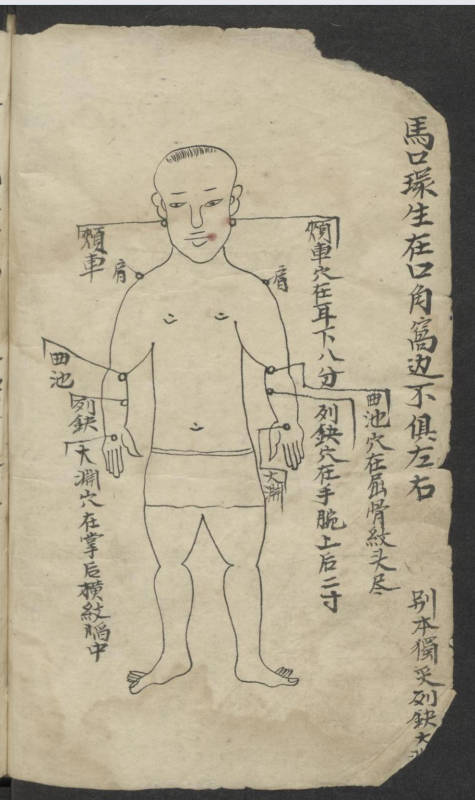 馬口環生在口角窩边不俱左右
别本獨灸列鈌大
頰車穴在耳下八分
曲池穴在屈骨紋头尽
列鈌穴在手腕上后二寸
肩
大渊
頰車
肩
曲池
列鈌
大渊穴在掌后横紋陷中